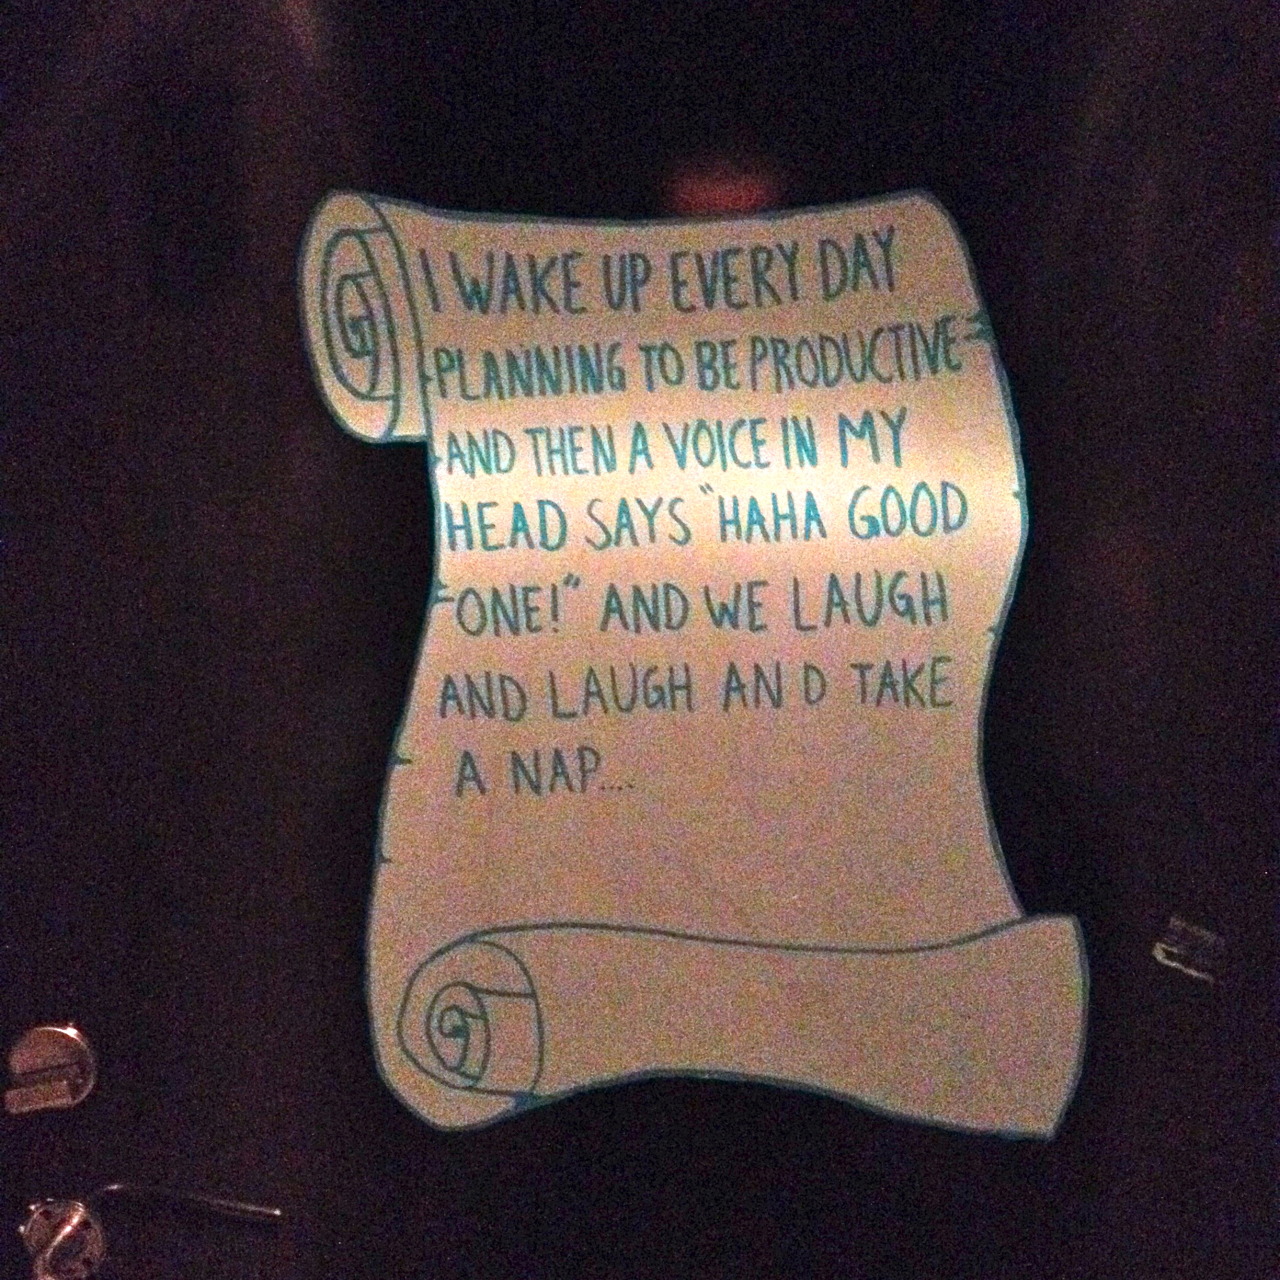 I WAKE UP EVERY DAY
PLANNING TO BE PRODUCTIVE
AND THEN A VOICE IN MY
HEAD SAYS "HAHA GOOD
ONE!" AND WE LAUGH
AND LAUGH AND TAKE
A NAP....